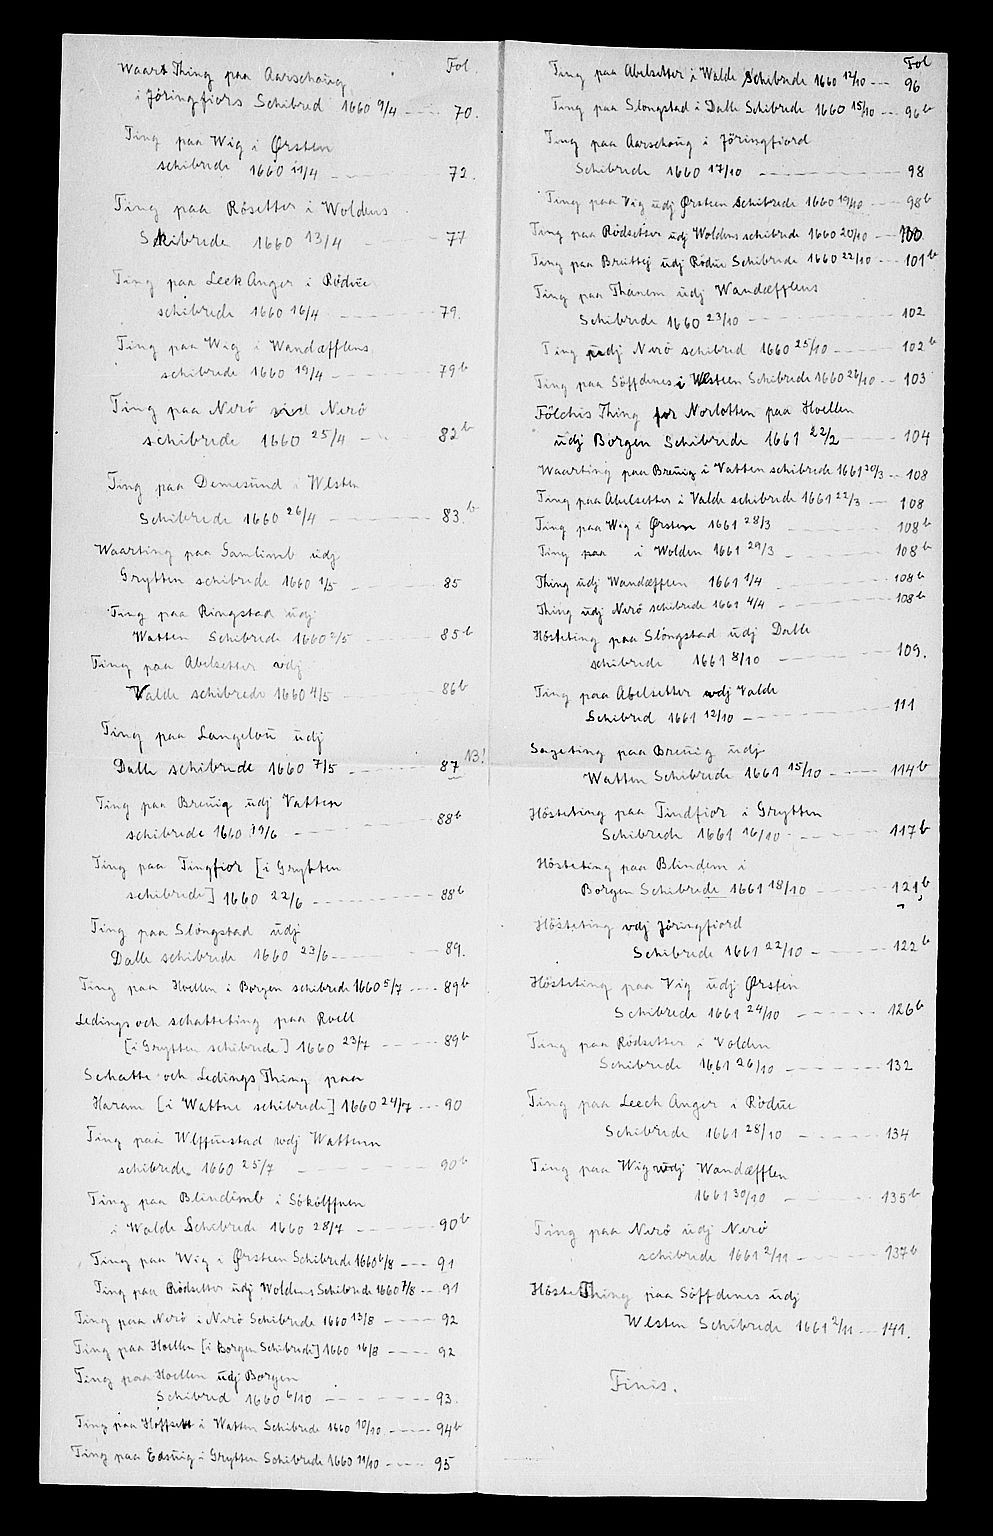 Fol
Waart Thing paa Aarschoüg
i Jöringfiors Schibred 1660 9/4 70.
Ting paa Wig i Ørsten
schibrede 1660 11/4 72.
Ting paa Rösetter i Woldens
Skibrede 1660 13/4 77
Ting paa Leek Anger i Rödüe
schibrede 1660 16/4 79.
Ting paa Wig i Wandæfflens
schibrede 1660 19/4 79b
Ting paa Nerö vid Nerö
schibrede 1660 25/4 82b
Ting paa Demesünd i Wlsten
Schibrede 1660 26/4 83.b
Waarting paa Samlimb üdj
Grytten schibrede 1660 1/5 85
Ting paa Ringstad üdj
Watten Schibrede 1660 2/5 85b
Ting paa Abelsetter vdj
Valde schibrede 1660 4/5 86b
Ting paa Langeloü üdj
Dalle schibrede 1660 7/5 87 13!
Ting paa Breüig üdj Vatten
schibrede 1660 19/6 88b
Ting paa Tingfior [i Grytten
schibrede] 1660 22/6 88b
Ting paa Slöngstad üdj
Dalle schibrede 1660 23/6 89.
Ting paa Hoellen i Borgen schibrede 1660 5/7 89b
Ledings och schatteting paa Roell
[i Grytten schibrede] 1660 23/7 89b
Schatte och Ledings Thing paa
Haram [i Wattne schibrede] 1660 24/7 90
Ting paa Wlffüestad vdj Wattenn
schibrede 1660 25/7 90b
Ting paa Blindimb i Sökölffuen
i Walde Schebrede 1660 28/7 90b
Ting paa Wig i Ørsteen Schibrede 1660 6/8 91
Ting paa Rödsetter üdj Woldens Schibrede 1660 7/8 91
Ting paa Nerö i Nerö Schibrede 1660 13/8 92
Ting paa Hoellen [i Borgen Schibrede] 1660 16/8 92
Ting paa Hoellen üdj Borgen
Schibred 1660 6/10 93.
Ting paa Hoffsett i Watten Schibrede 1660 10/10 94b
Ting paa Edsüig i Grytten Schibrede 1660 11/10 95
Fol
Ting paa Abelsetter i Walde Schebrede 1660 12/10 96
Ting paa Slongstad i Dalle Schibrede 1660 15/10 96b
Ting paa Aarschoüg i Jöringfiord
Schibrede 1660 17/10 98
Ting paa Vig üdj Ørsteen Schibrede 1660 19/10 98b
Ting paa Rödsetter üdj Woldens schibrede 1660 20/10 100
Ting paa Brüttej üdj Rödüe Schibrede 1660 22/10 101b
Ting paa Thanem üdj Wandæfflens
Schibrede 1660 23/10 102
Ting üdj Nerö schibred 1660 25/10 102b
Ting paa Söffdenes i Wlsteen Schibrede 1660 26/10 103
Fölchis Thing for Norlotten paa Hoellen
üdj Borgen Schibrede 1661 22/2 104
Waarting paa Breüig i Vatten schibrede 1661 20/3 108
Ting paa Abelsetter i Valde schibrede 1661 22/3 108
Ting paa Wig i Ørsten 1661 28/3 108b
Ting paa i Wolden 1661 29/3 108b
Thing üdj Wandæfflen 1661 1/4 108b
Thing üdj Nerö schibrede 1661 4/4 108b
Hösteting paa Slöngstad üdj Dalle
schibrede 1661 8/10 109.
Ting paa Abelsetter vdj Valde
Schibred 1661 12/10 111
Sageting paa Breüig üdj
Watten Schibrede 1661 15/10 114b
Hösteting paa Tindfior i Grytten
Schibrede 1661 16/10 117b
Hösteting paa Blindem i
Borgen Schibrede 1661 18/10 121b
Hösteting vdj Jöringfiord
Schibrede 1661 22/10 122b
Hösteting paa Vig üdj Ørsten
Schibrede 1661 24/10 126b
Ting paa Rödsetter i Volden
Schibrede 1661 26/10 132
Ting paa Leech Anger i Rödüe
Schibrede 1661 28/10 134
Ting paa Wig üdj Wandæfflen
1661 30/10 135b
Ting paa Nerö üdj Nerö
schibrede 1661 2/11 137b
Höste Thing paa Söffdenes üdj
Wlsten Schibrede 1661 2/11 141.
Finis.